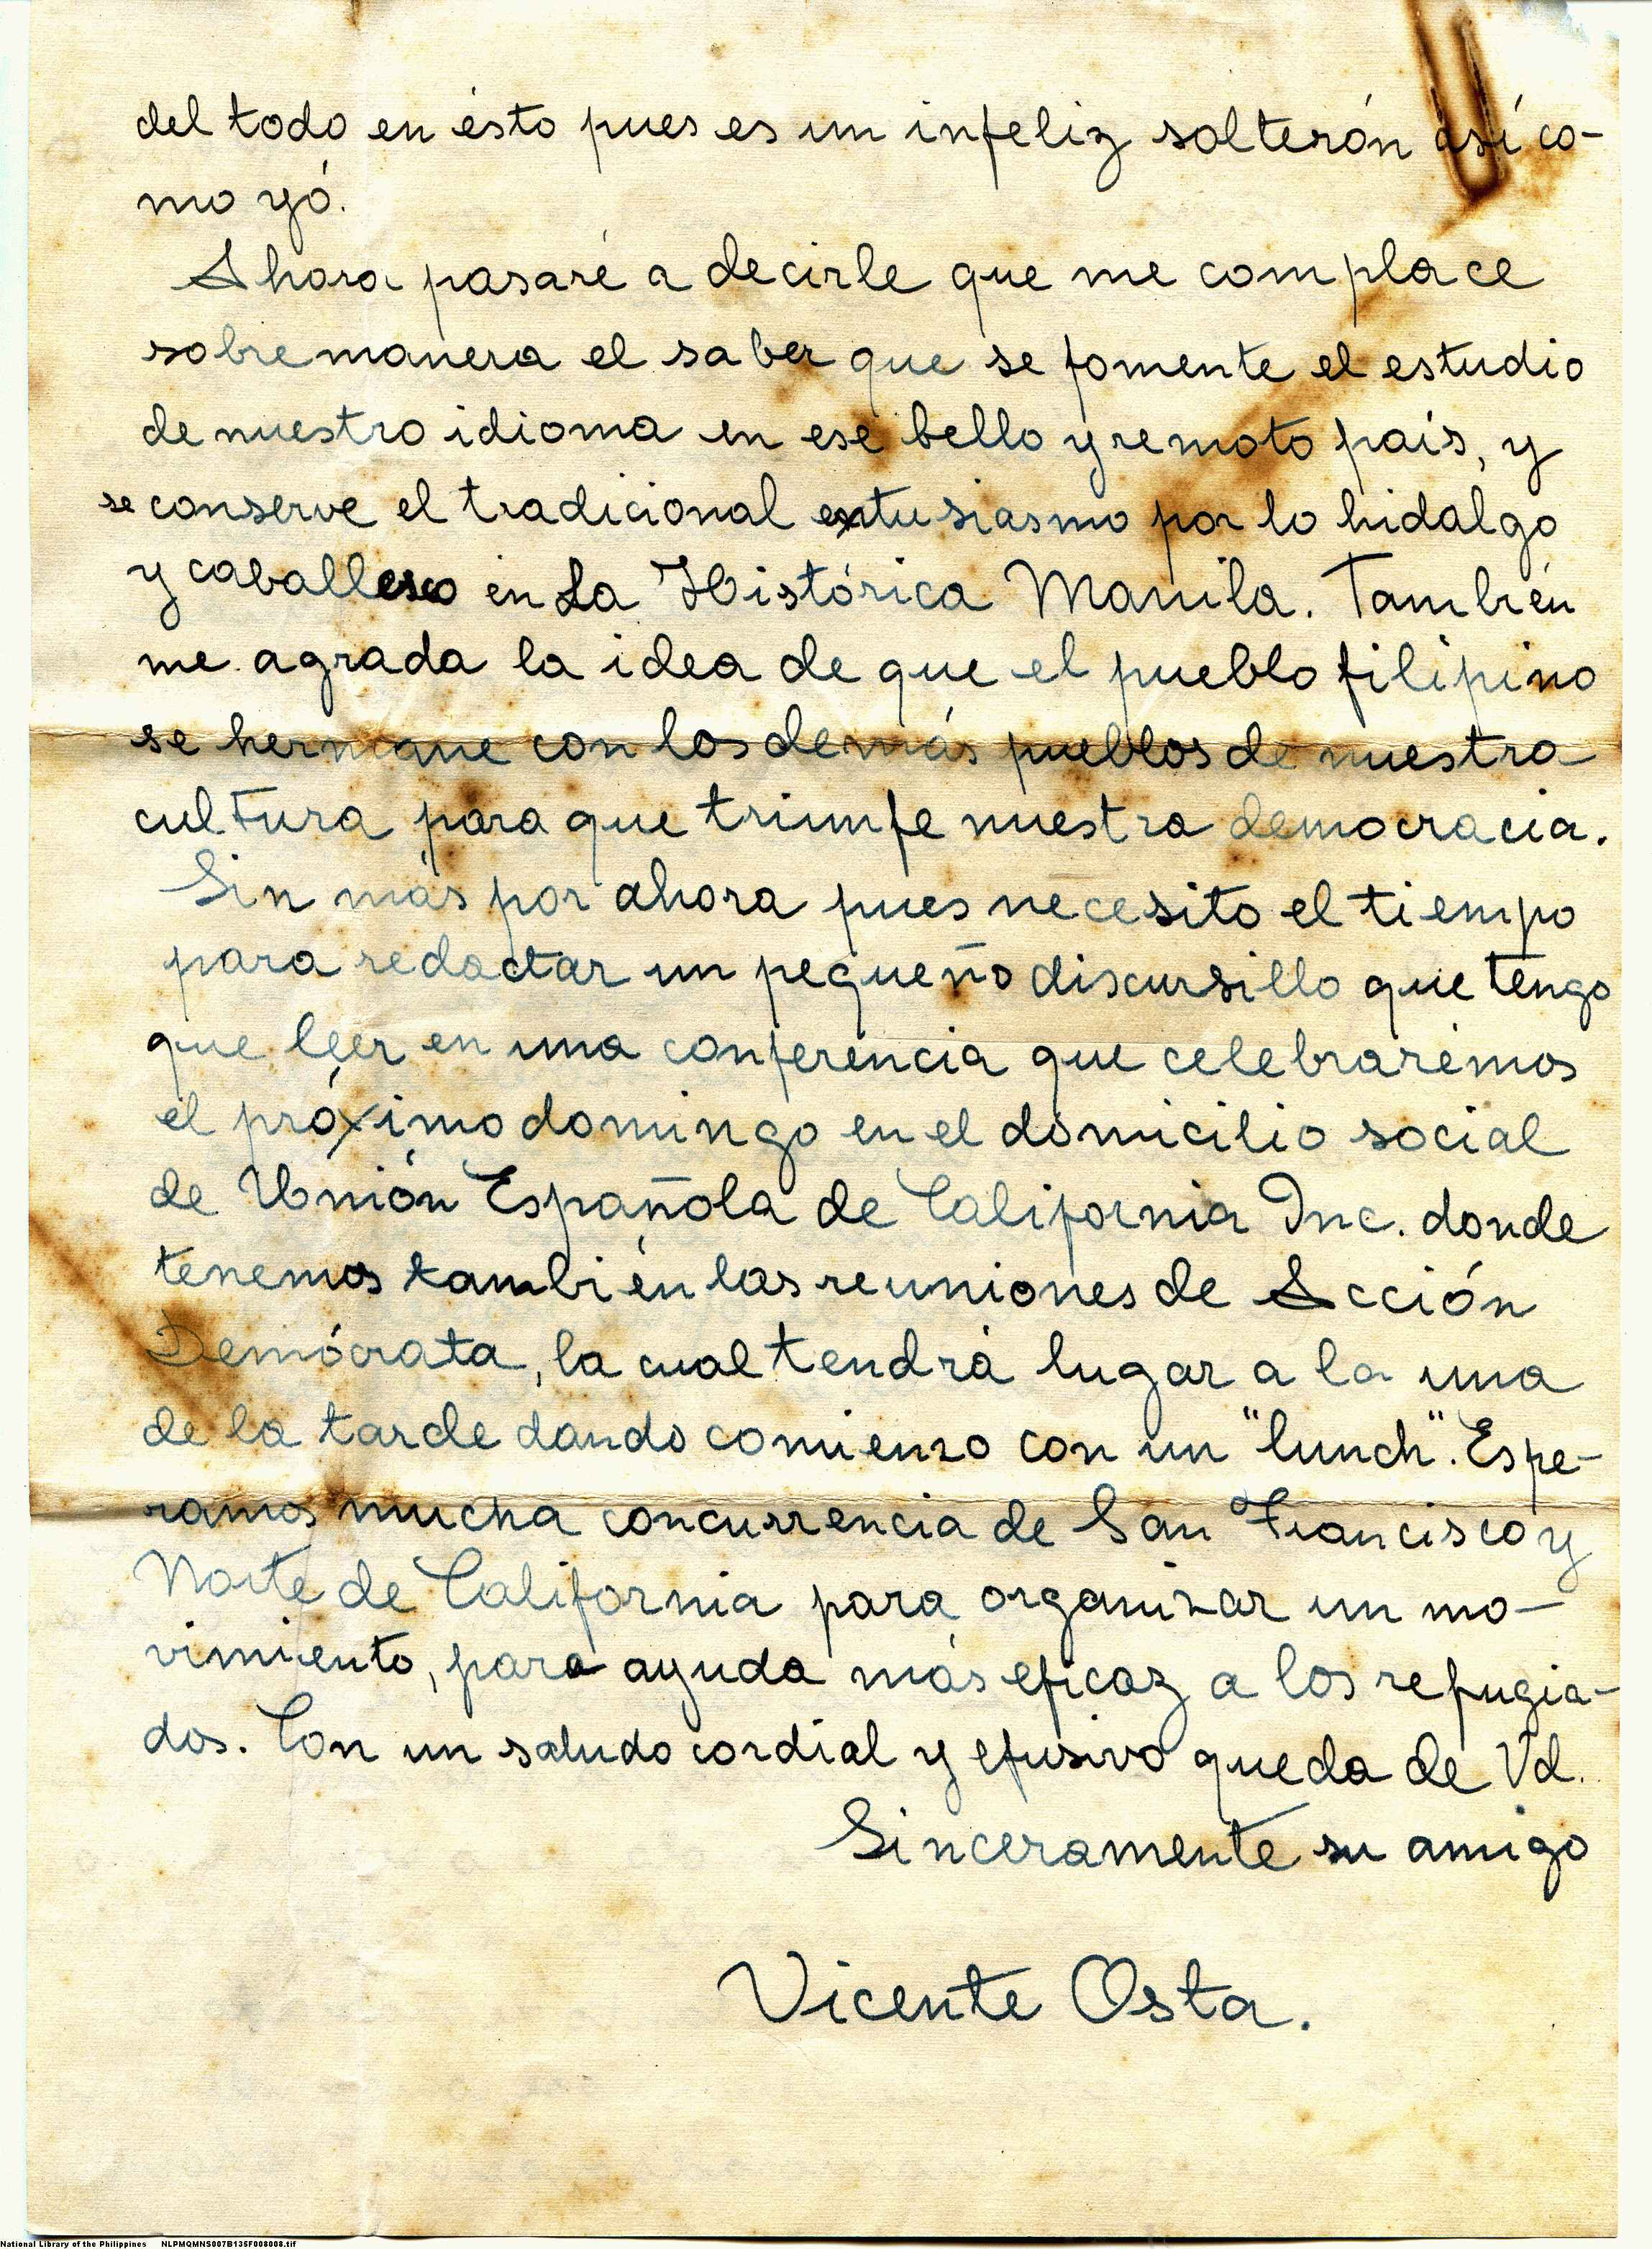 del todo en ésto pues es un infeliz solterón así co-
mo yó.
Ahora pasaré a decirle que me complace
sobremanera el saber que se fomente el estudio
de nuestro idioma en ese bello y remoto país, y
se conserve el tradicional extusiasmo por lo hidalgo
y caballesco en La Histórica Manila. También
me agrada la idea de que el pueblo filipino
se hermane con los demás pueblos de nuestra
cultura para que triunfe nuestra democracia.
Sin más por ahora pues necesito el tiempo
para redactar un pequeño discursillo que tengo
que leer en una conferencia que celebrarémos
el próximo domingo en el domicilio social
de Unión Española de California Inc. donde
tenemos también las reuniones de Acción
Demócrata, la cual tendrá lugar a la una
de la tarde dando comienzo con un "lunch". Espe-
ramos mucha concurrencia de San Francisco y
Norte de California para organizar un mo-
vimiento, para ayuda más eficaz a los refugia-
dos. Con un saludo cordial y efusivo queda de Vd.
Sinceramente su amigo
Vicente Osta.
National Library of the Philippines NLPMQMNS007B135F008008.tif